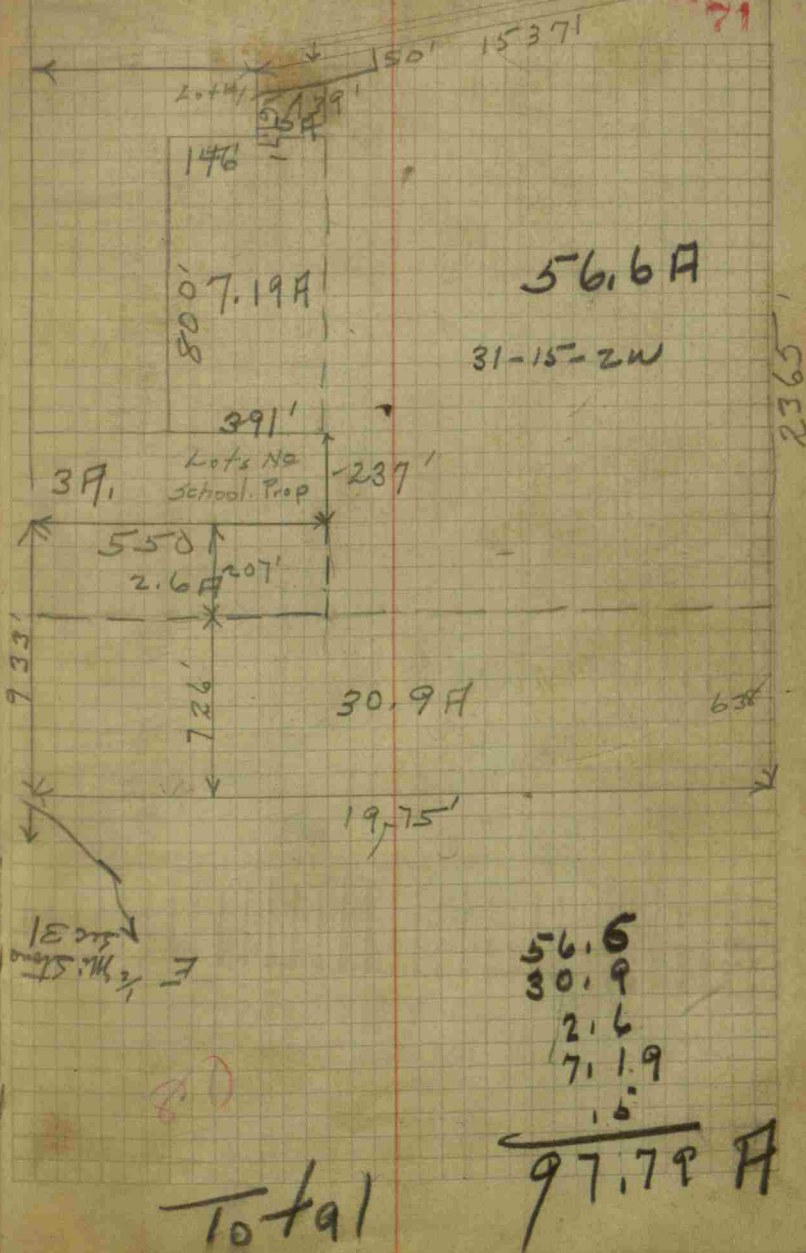 71
50'
15371
Lot 4
139'
.5 A
146'
800'
7.19 A
56.6 A
31-15-2W
2365'
391'
Lots No
School Prop
237'
3 A.
550
2.6 A
207'
933'
726'
30.9 A
638
19,75'
E 1/2 Mi Stone
Sec 31
56.6
30.9
2.6
7.19
.5
97.79 A
Total